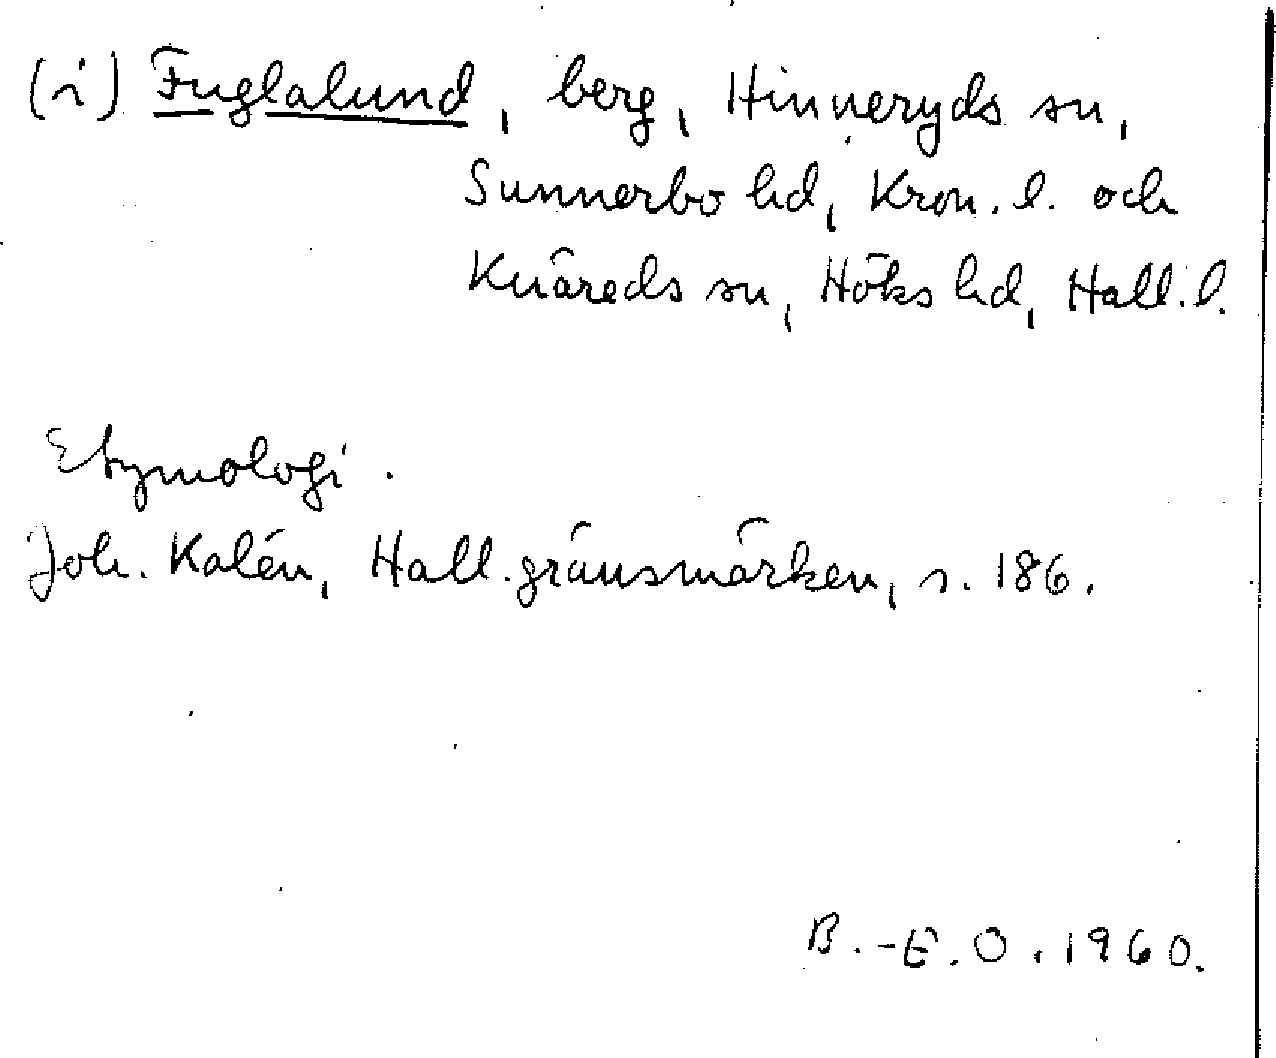 (i) Fuglalund, berg, Hinneryds sn,
Sunnerbo hd, Kron. l. och
Knäreds sn, Höks hd, Hall. l.
Etymologi.
Joh. Kalén, Hall. gränsmärken, s. 186.
B.-E. O. 1960.